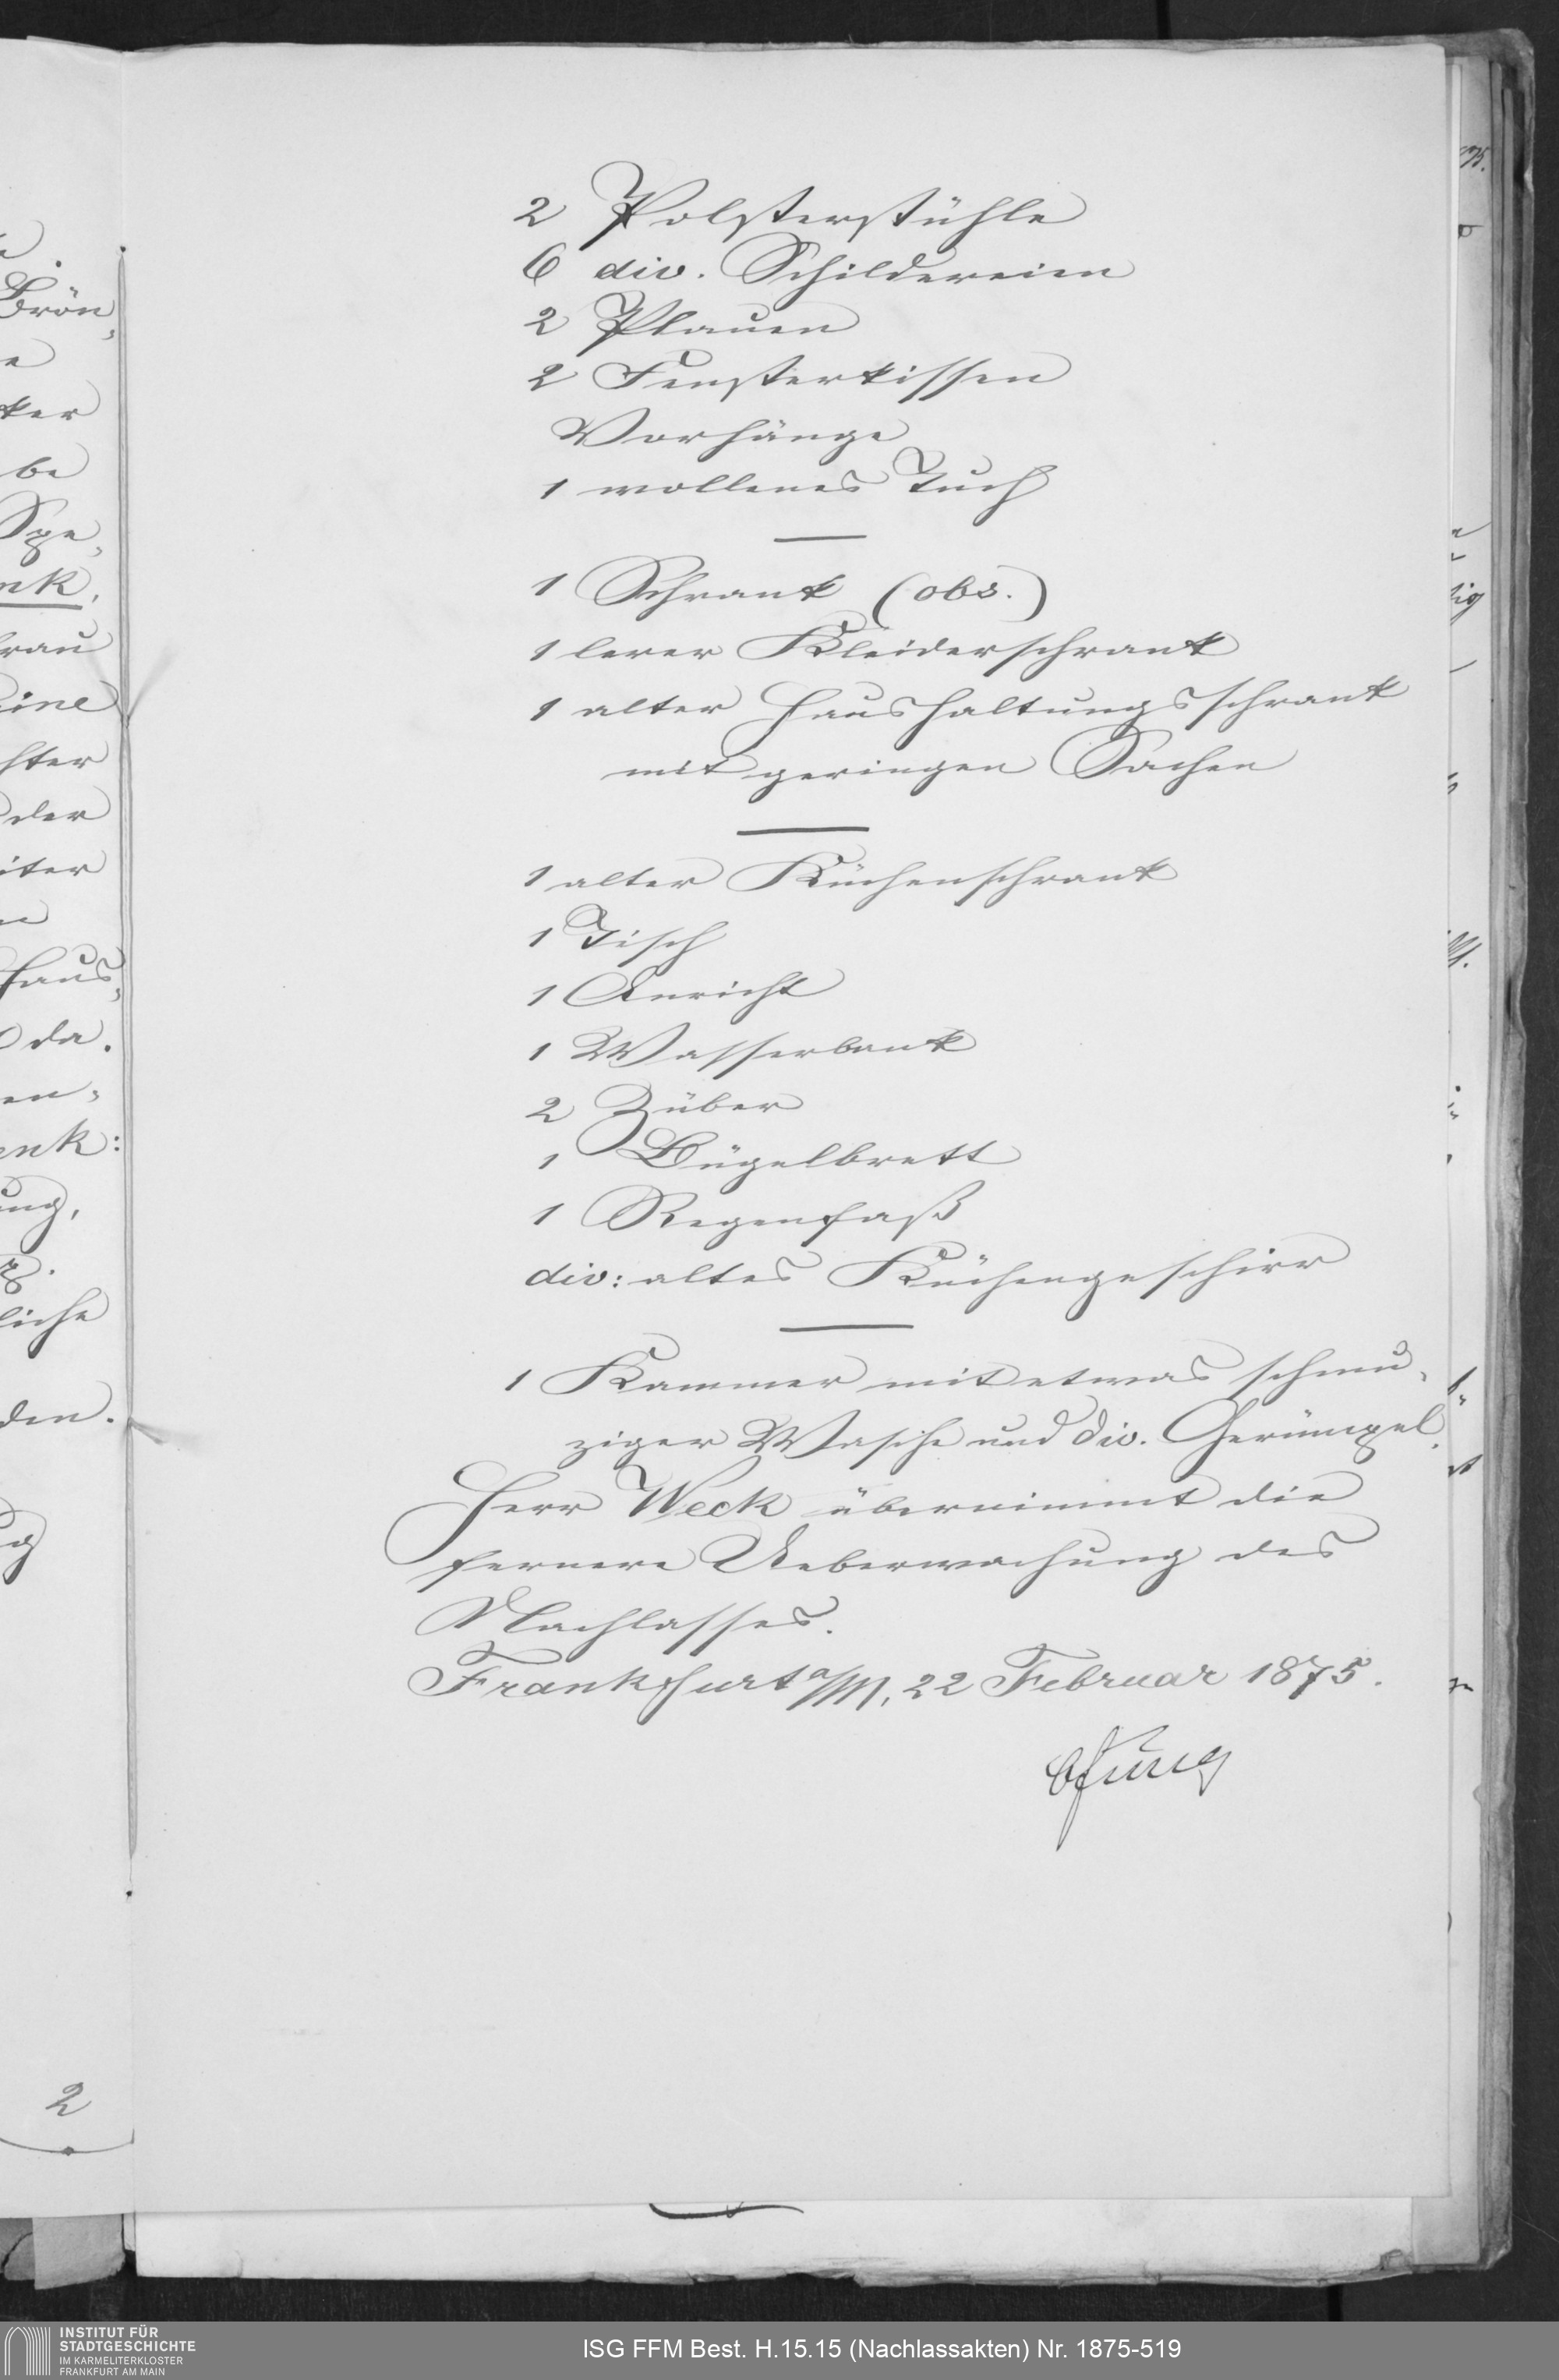 2 Polsterstühle
6 div. Schildereien
2 Plauen
2 Fensterkissen
Vorhänge
1 wollenes Tuch
1 Schrank (obs.)
1 lerer Kleiderschrank
1 alter Haushaltungsschrank
mit geringen Sachen
1 alter Küchenschrank
1 Tisch
1 Anricht
1 Wasserbank
2 Züber
1 Bügelbrett
1 Regenfaß
div: altes Küchengeschirr
1 Kammer mit etwas schmu-
ziger Wasche und div. Gerümpel.
Herr Weck übernimmt die
fernere Ueberwachung des
Nachlasses.
Frankfurt a/M, 22 Februar 1875.
2
INSTITUT FÜR
STADTGESCHICHTE
IM KARMELITERKLOSTER
FRANKFURT AM MAIN
ISG FFM Best. H.15.15 (Nachlassakten) Nr. 1875-519